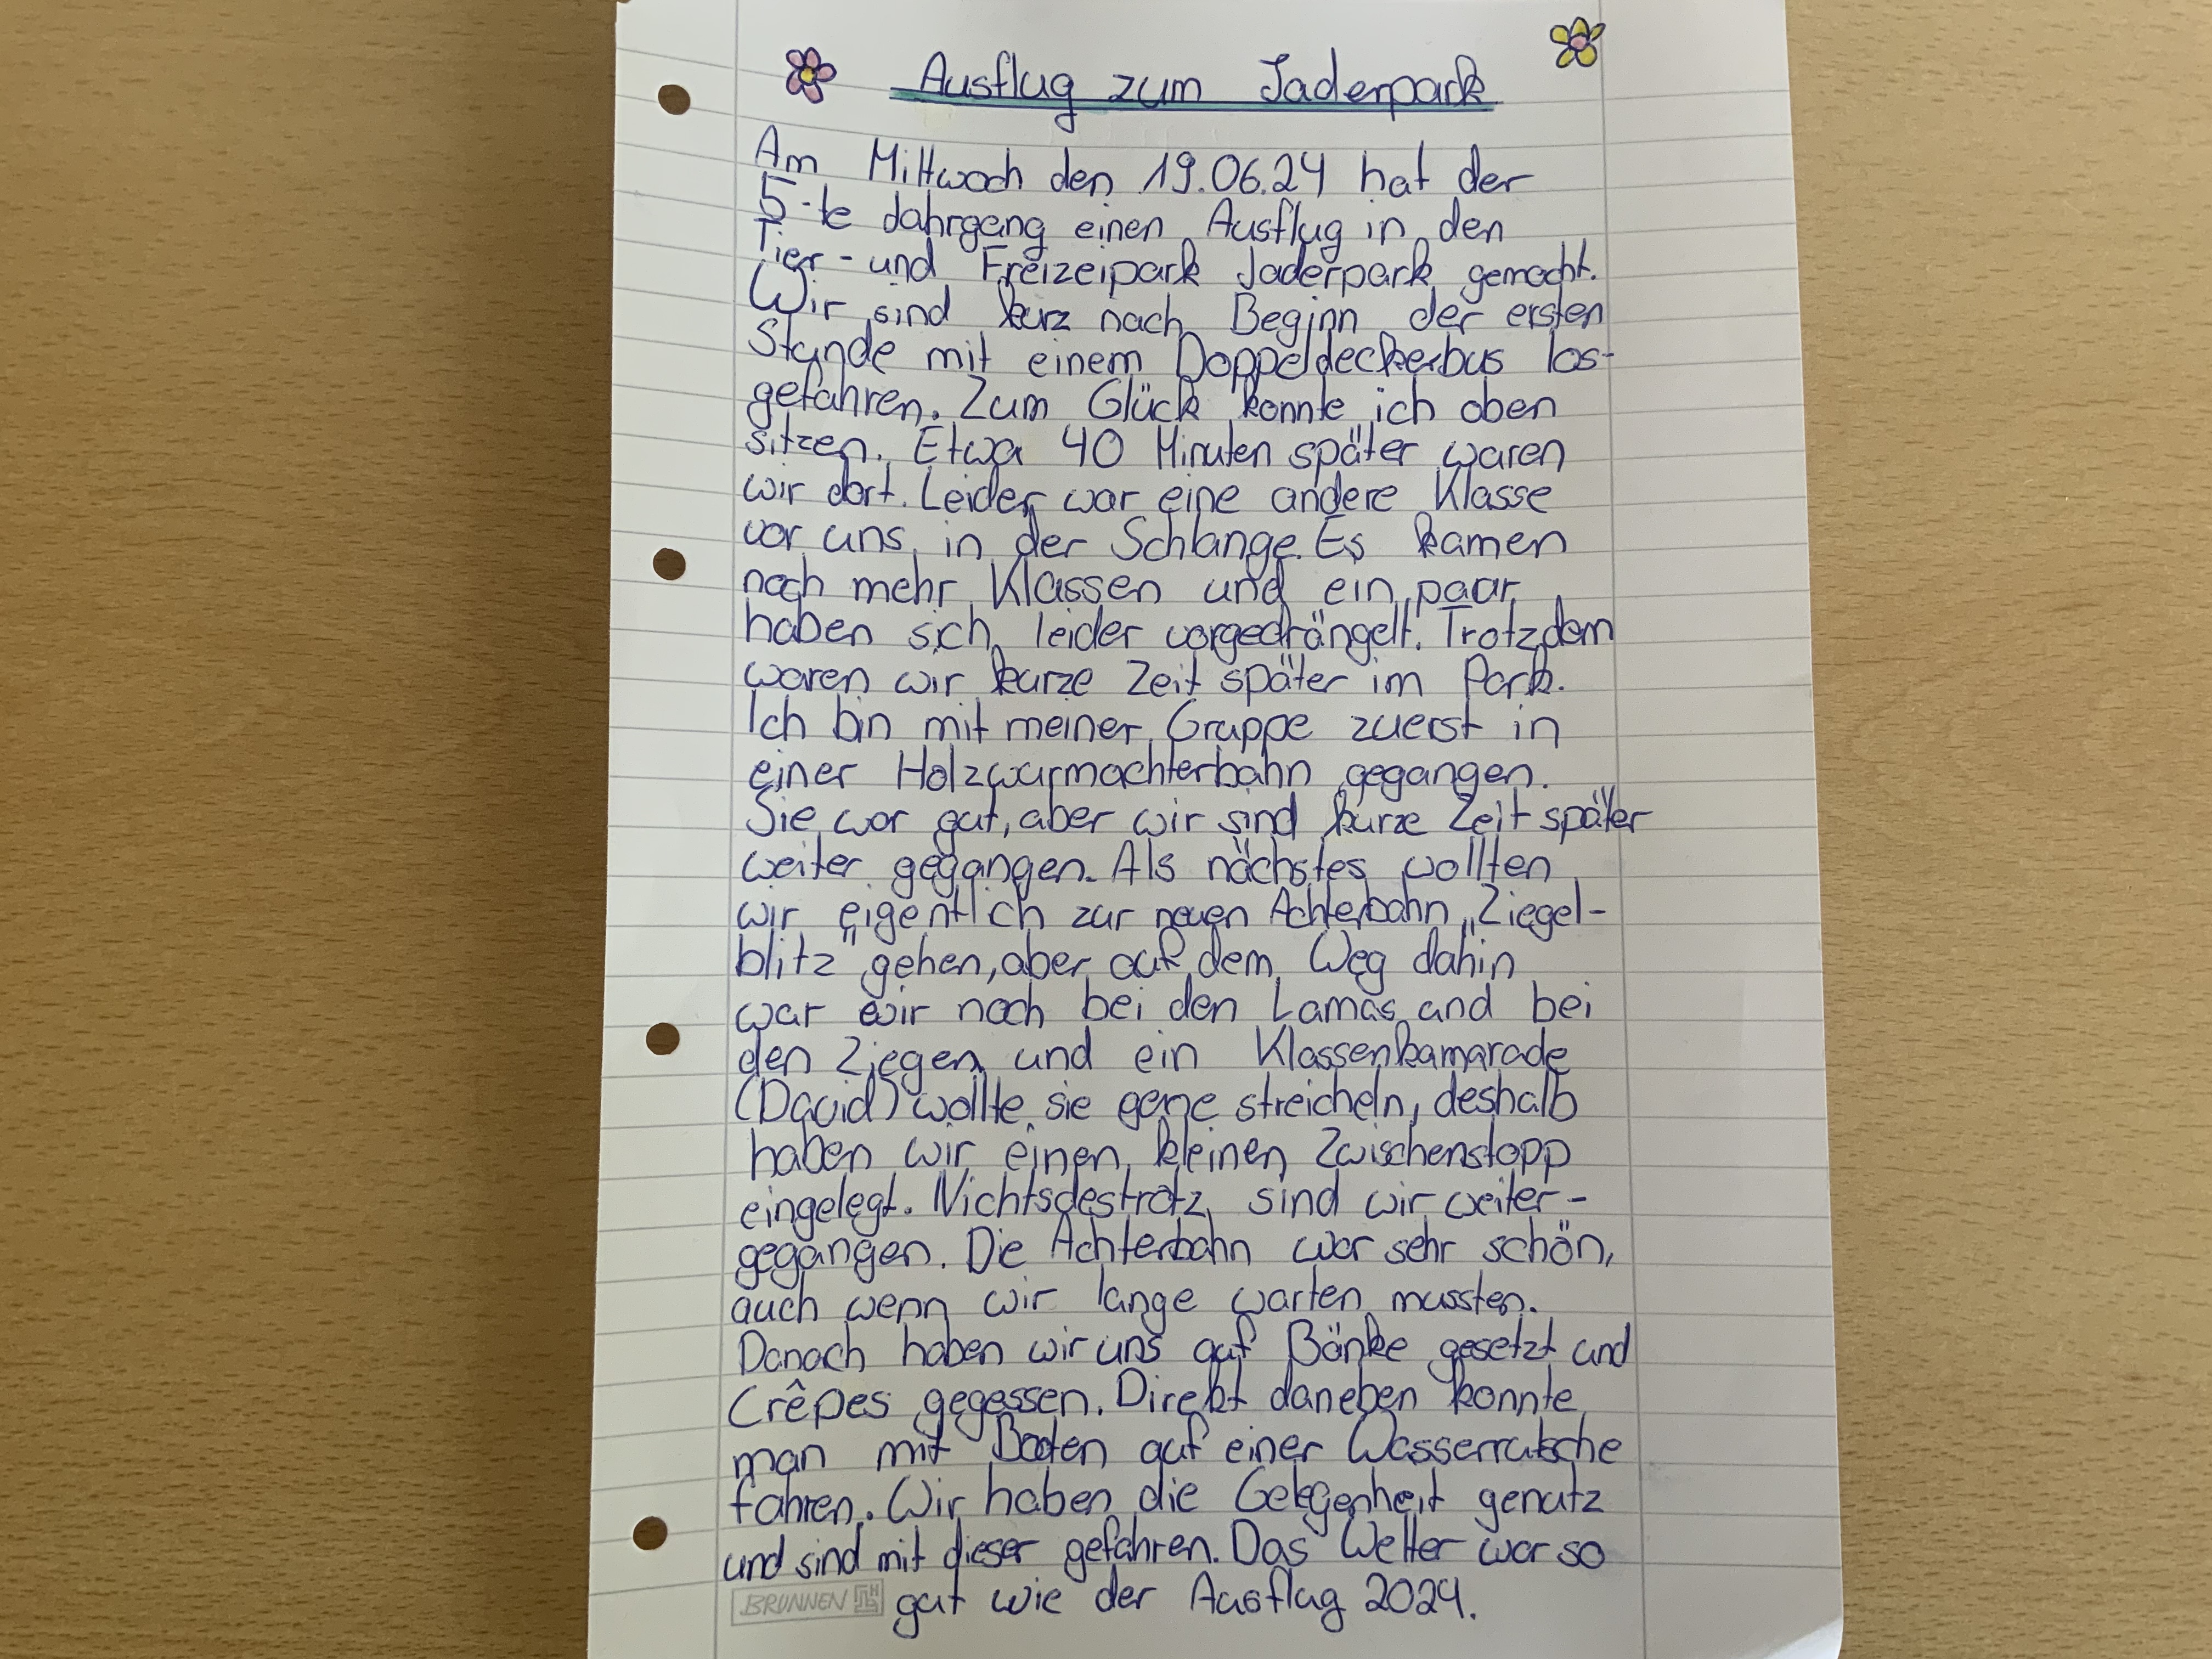 Ausflug zum Jaderpark
Am Mittwoch den 19.06.24 hat der
5-te Jahrgang einen Ausflug in den
Tier- und Freizeipark Jaderpark gemacht.
Wir sind kurz nach Beginn der ersten
Stunde mit einem Doppeldeckerbus los-
gefahren. Zum Glück konnte ich oben
sitzen. Etwa 40 Minuten später waren
wir dort. Leider war eine andere Klasse
vor uns in der Schlange. Es kamen
noch mehr Klassen und ein paar
haben sich leider vorgedrängelt. Trotzdem
waren wir kurze Zeit später im Park.
Ich bin mit meiner Gruppe zuerst in
einer Holzwurmachterbahn gegangen.
Sie war gut, aber wir sind kurze Zeit später
weiter gegangen. Als nächstes wollten
wir eigentlich zur neuen Achterbahn „Ziegel-
blitz" gehen, aber auf dem Weg dahin
war wir noch bei den Lamas und bei
den Ziegen und ein Klassenkamarade
(David) wollte sie gerne streicheln, deshalb
haben wir einen kleinen Zwischenstopp
eingelegt. Nichtsdestrotz sind wir weiter-
gegangen. Die Achterbahn war sehr schön,
auch wenn wir lange warten mussten.
Danach haben wir uns auf Bänke gesetzt und
Crêpes gegessen. Direkt daneben konnte
man mit Booten auf einer Wasserrutsche
fahren. Wir haben die Gelegenheit genutz
und sind mit dieser gefahren. Das Wetter war so
gut wie der Ausflug 2024.
BRUNNEN